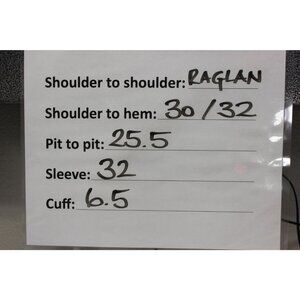 Shoulder to shoulder: RAGLAN
Shoulder to hem: 30/32
Pit to pit: 25.5
Sleeve: 32
Cuff: 6.5